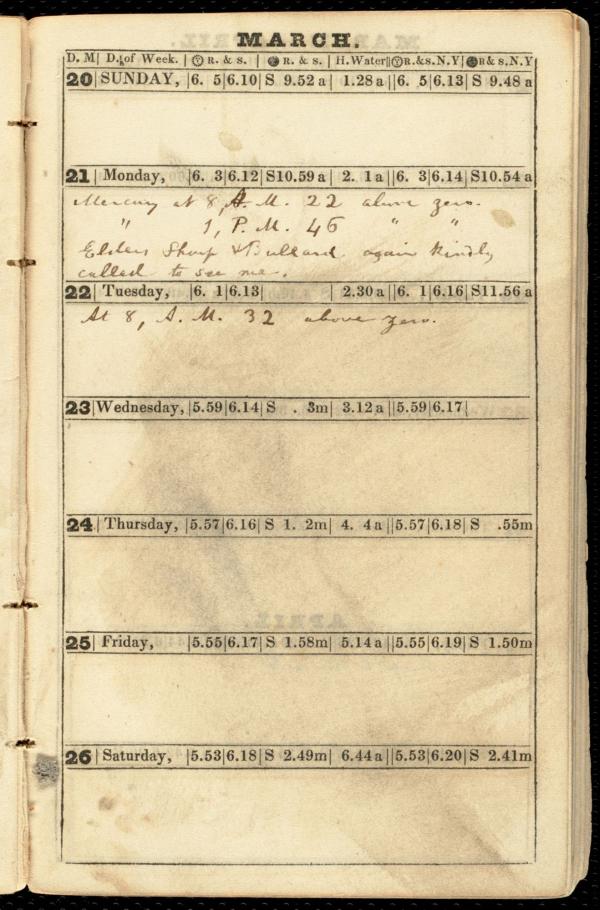 MARCH.
D. M| D. of Week. | R. & s. | R. & s. | H.Water||R.&s.N.Y|R&s.N.Y
20|SUNDAY, |6. 5|6.10|S 9.52a| 1.28a||6. 5|6.13|S 9.48a
21|Monday, |6. 3|6.12|S10.59a| 2. 1a||6. 3|6.14|S10.54a
Mercury at 8, A. M. 22 above zero.
" 1, P. M. 46 " "
Elders Sharp & Bullard again kindly
called to see me.
22|Tuesday, |6. 1|6.13| | 2.30a||6. 1|6.16|S11.56a
At 8, A. M. 32 above zero.
23|Wednesday, |5.59|6.14|S . 3m| 3.12a||5.59|6.17|
24|Thursday, |5.57|6.16|S 1. 2m| 4. 4a||5.57|6.18|S .55m
25|Friday, |5.55|6.17|S 1.58m| 5.14a||5.55|6.19|S 1.50m
26|Saturday, |5.53|6.18|S 2.49m| 6.44a||5.53|6.20|S 2.41m